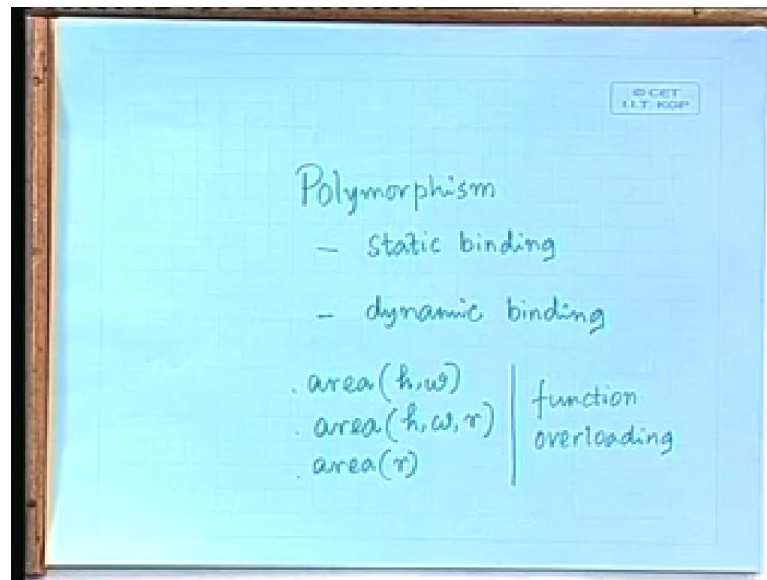 © CET
I.I.T. KGP
Polymorphism
- static binding
- dynamic binding
. area(h,w)
. area(h,w,r)
. area(r)
function
overloading